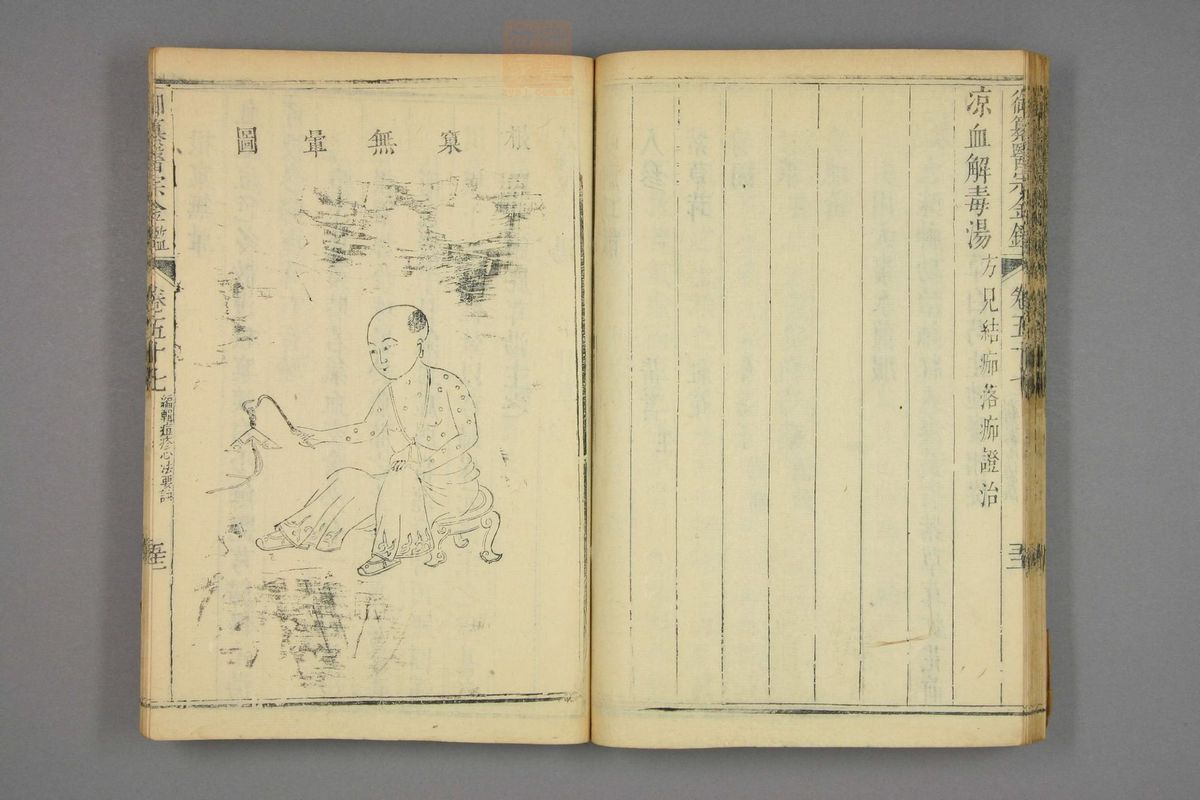 御纂醫宗金鑑 卷五十七
凉血解毒湯方見結痂落痂證治
根窠無暈圖
御纂醫宗金鑑 卷五十七 編輯痘疹心法要訣